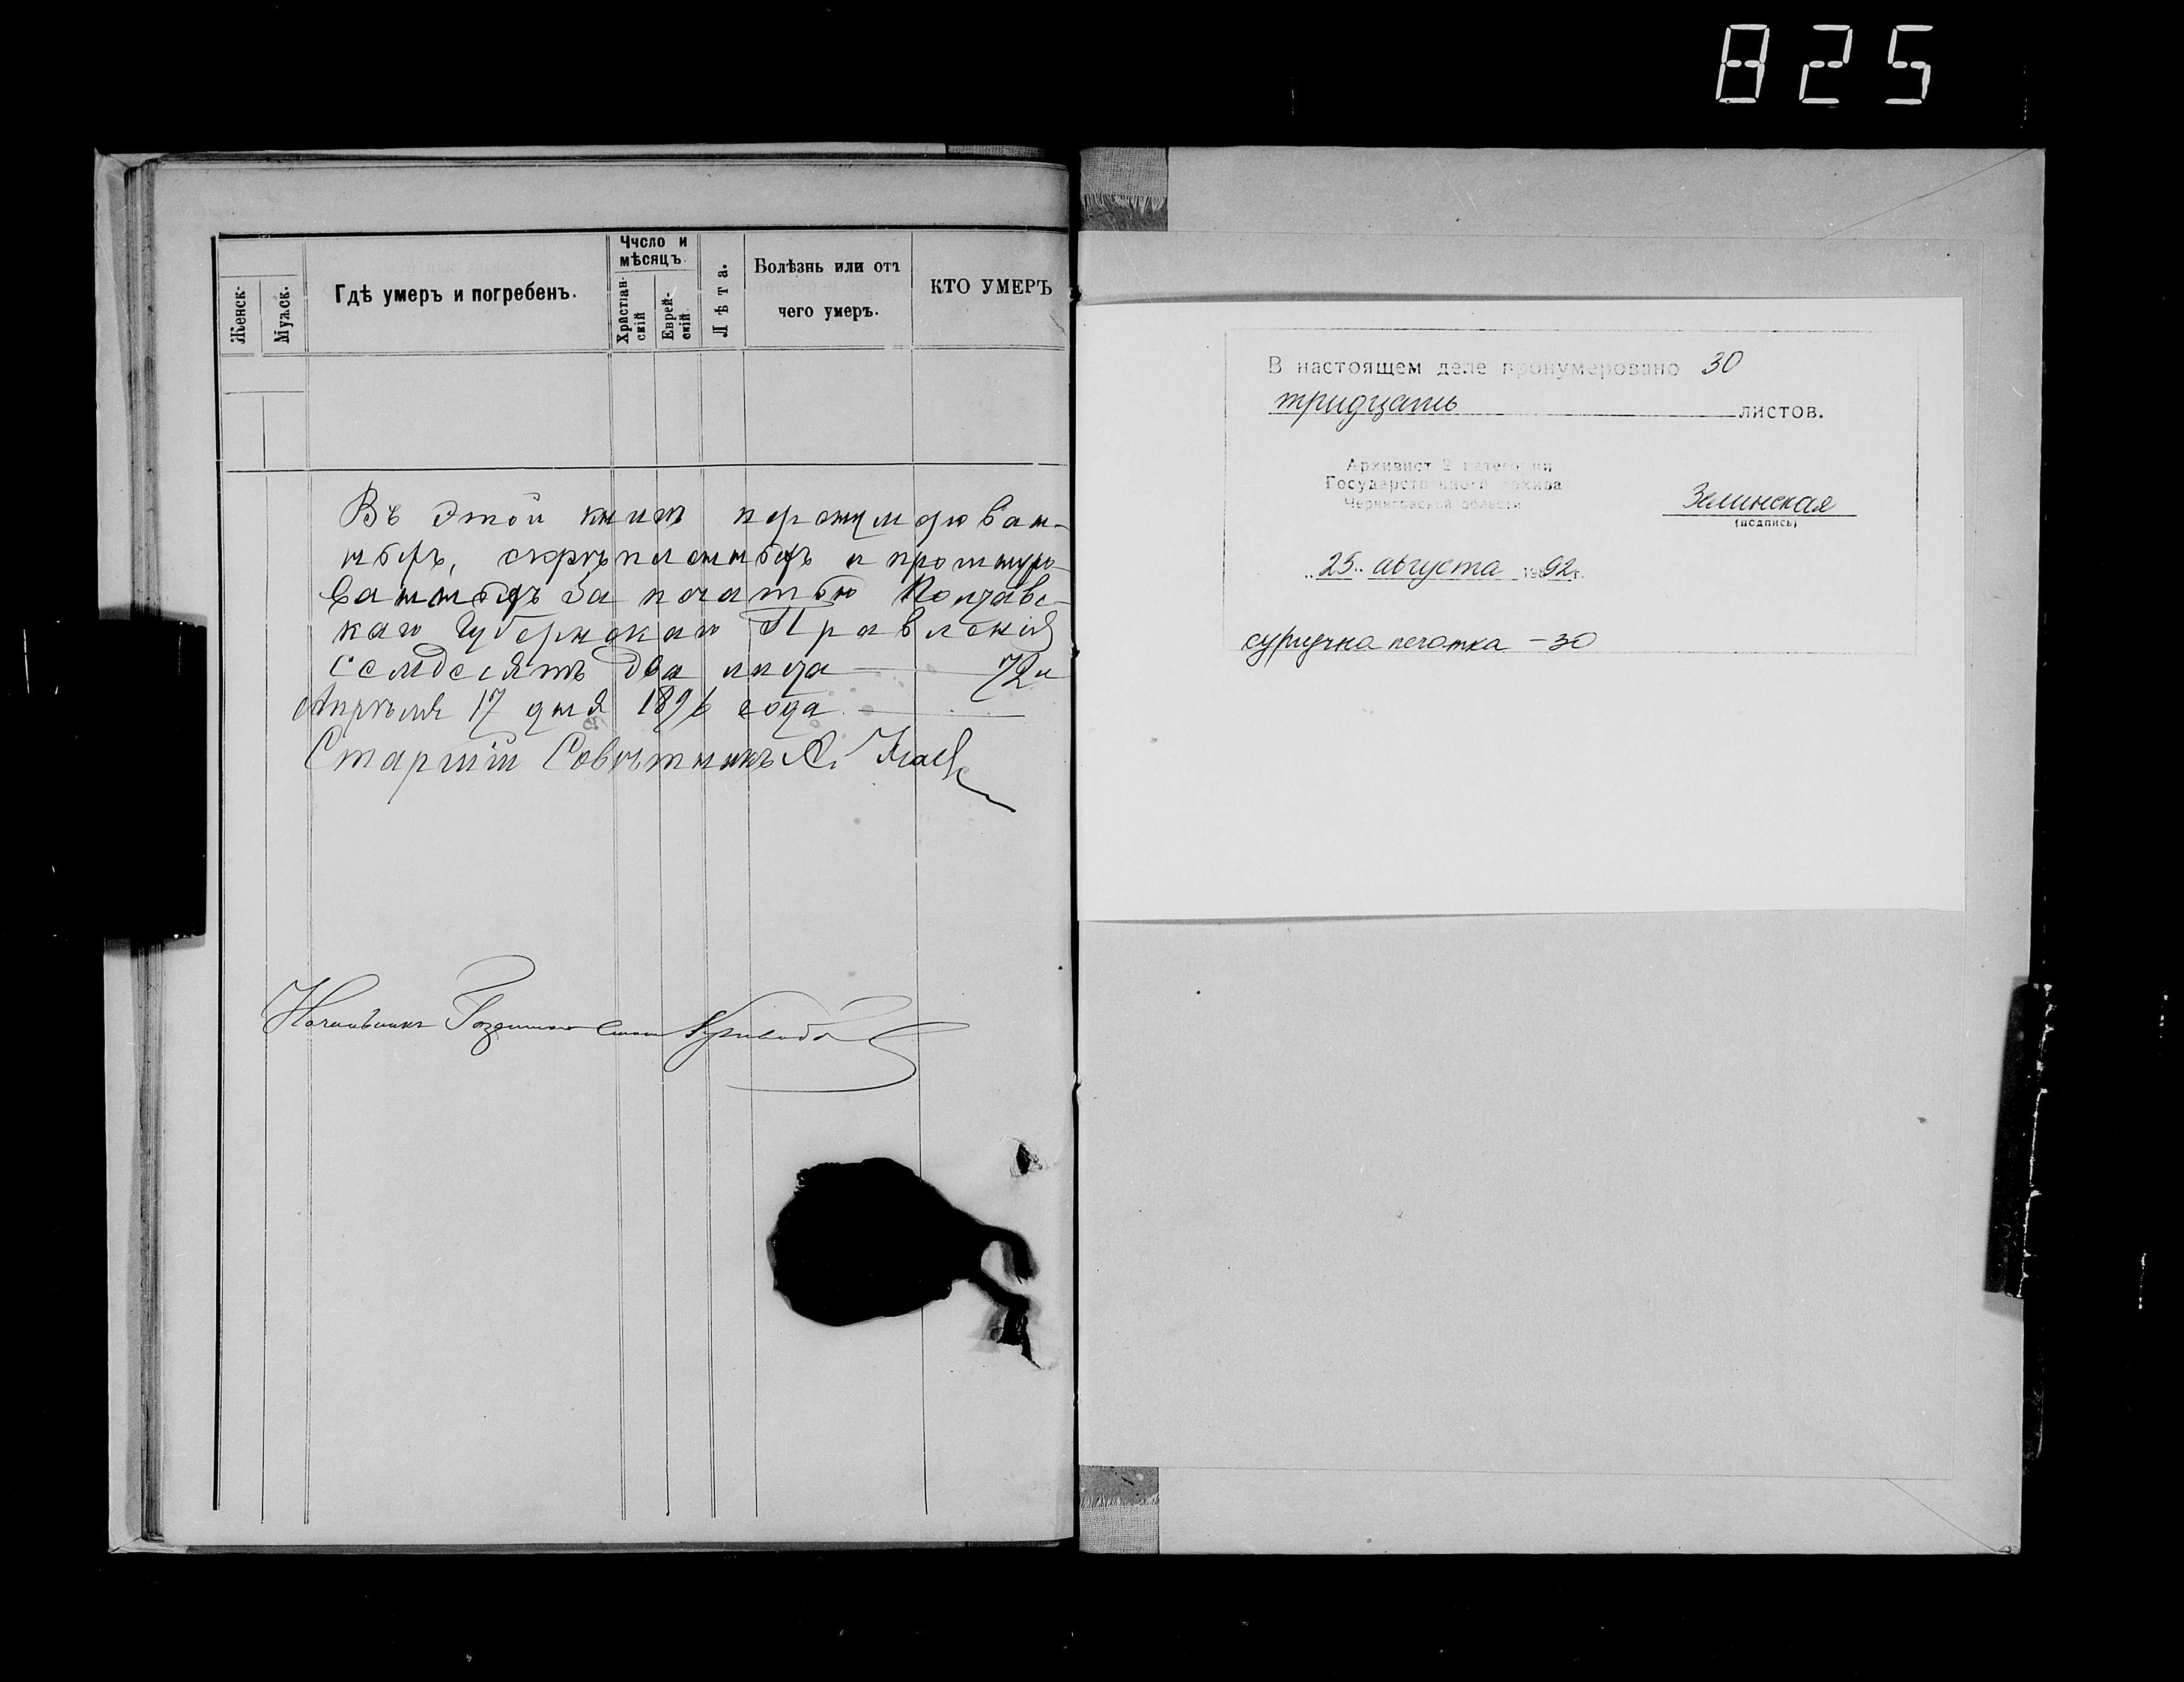 825
Женск.
Мужск.
Гдѣ умеръ и погребенъ.
Число и
мѣсяцъ.
Христіан-
скій
Еврей-
скій.
Лѣта.
Болѣзнь или отъ
чего умеръ.
КТО УМЕРЪ
Въ этой книгѣ перенумерован-
ныхъ, скрѣпленныхъ и прошнуро-
ванныхъ за печатью Полтавс-
каго Губернскаго Правленія
семдесятъ два листа 72 л
Апрѣля 17 дня 1896 года.
Старшій Совѣтникъ
Начальникъ
В настоящем деле пронумеровано 30
тридцать листов.
Архивист 2 категории
Государственного архива
Черниговской области
Зелинская
(подпись)
„25" августа 1992 г.
сургучна печатка - 30